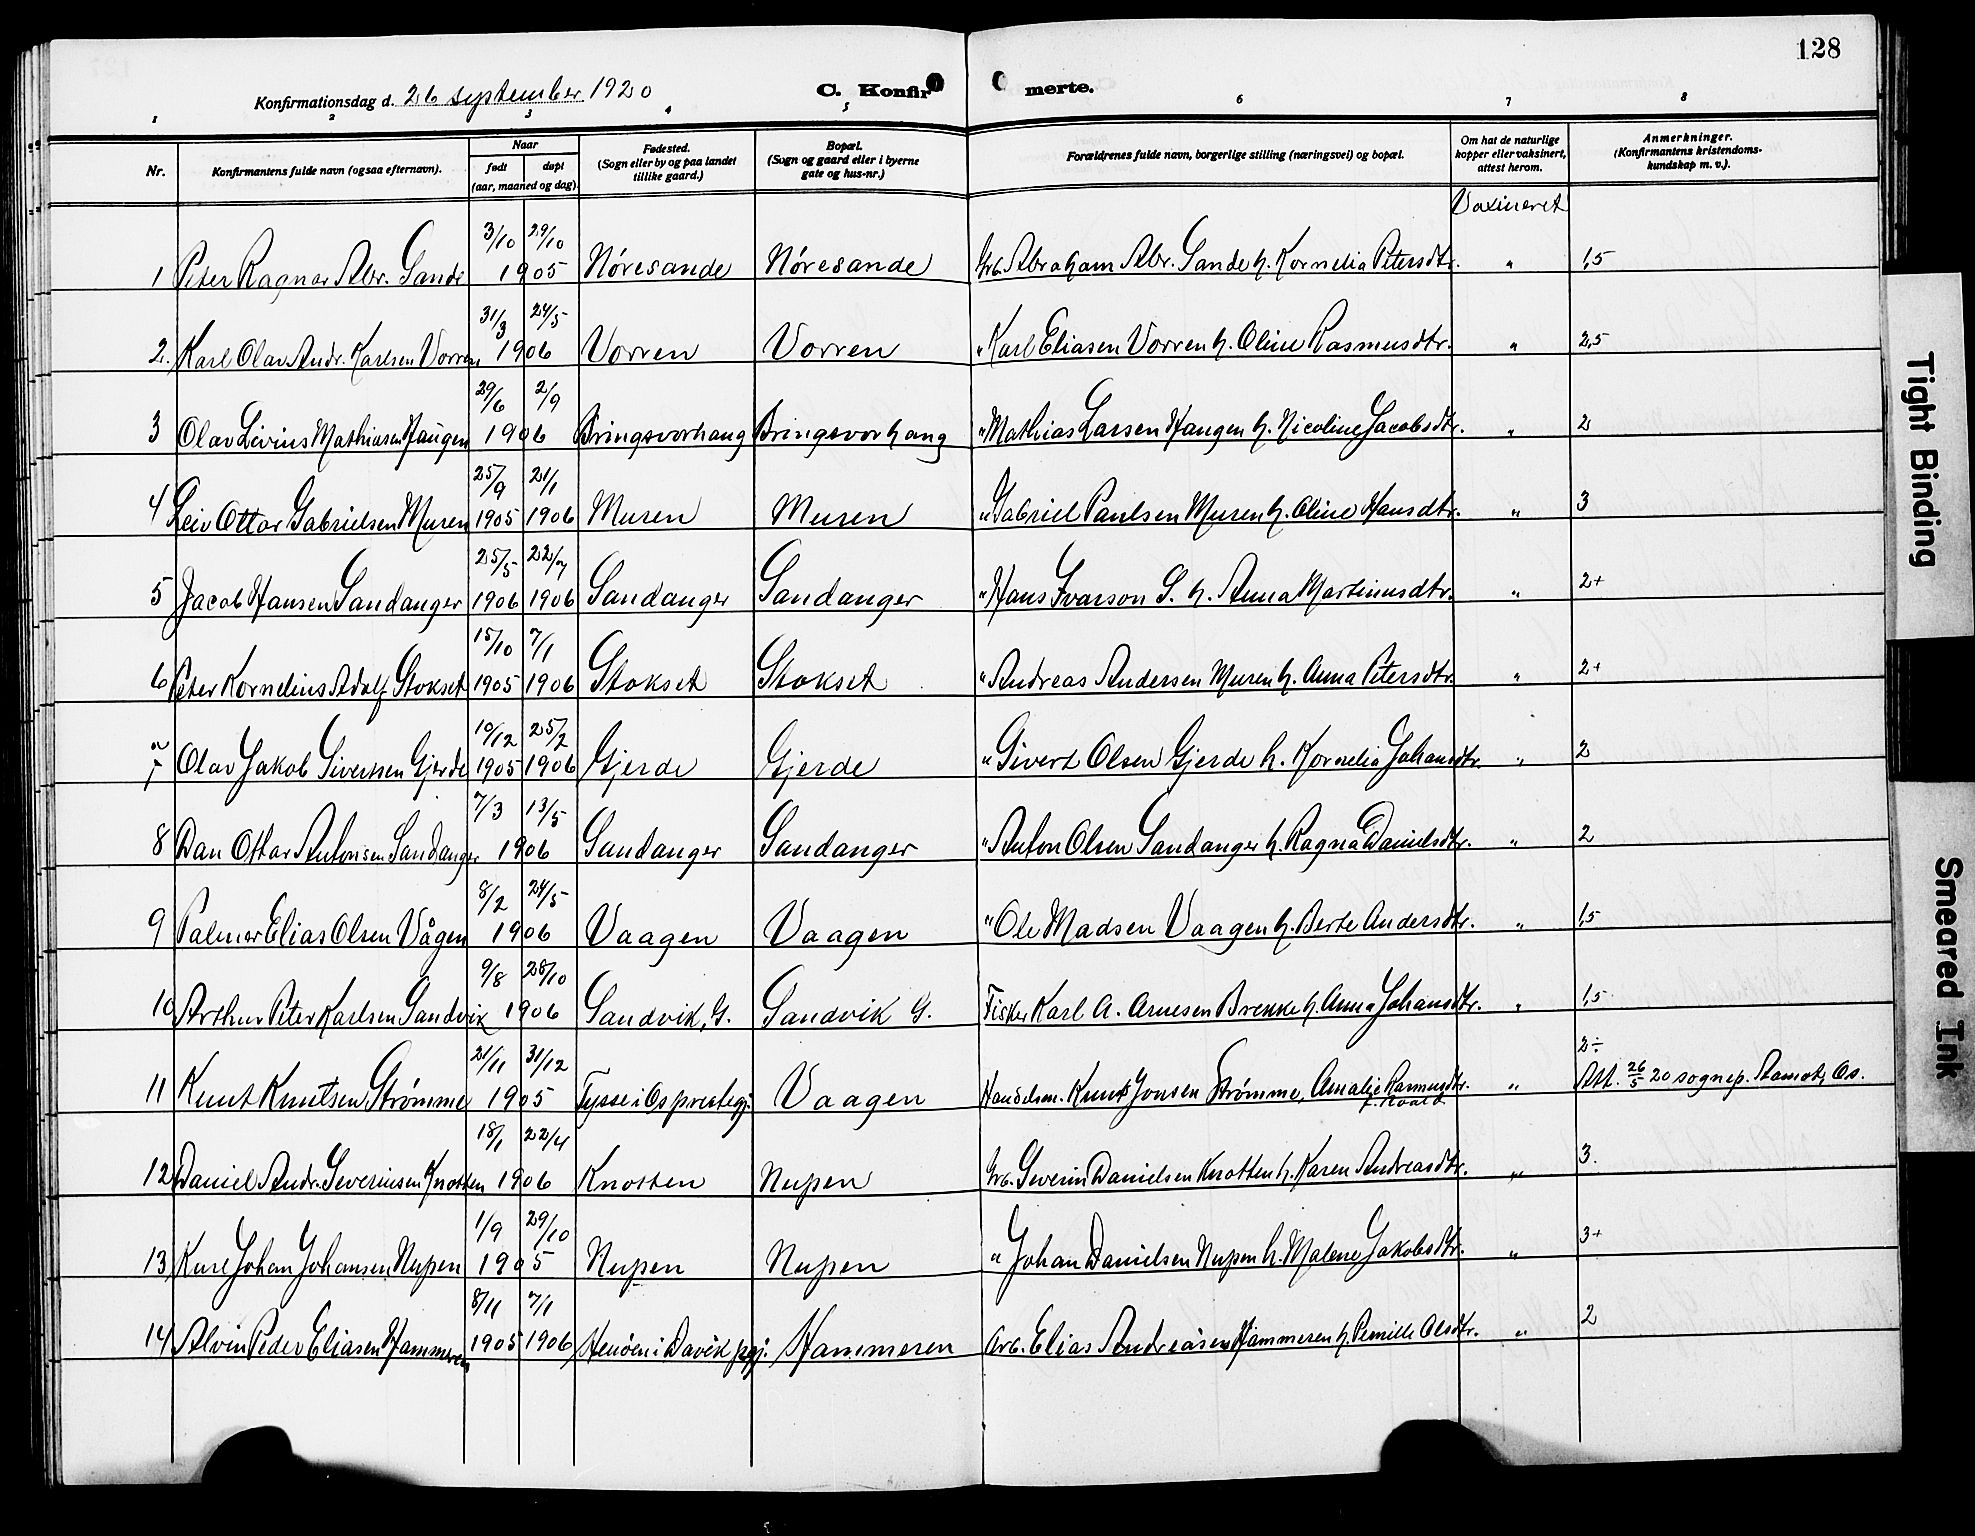 128
Konfirmationsdag d. 26 september 1920 C. Konfir merte.
1 2 3 4 5 6 7 8
Nr. Konfirmantens fulde navn (ogsaa efternavn). Naar født døpt (aar, maaned og dag) Fødested. (Sogn eller by og paa landet tillike gaard.) Bopæl. (Sogn og gaard eller i byerne gate og hus-nr.) Forældrenes fulde navn, borgerlige stilling (næringsvei) og bopæl. Om hat de naturlige kopper eller vaksinert, attest herom. Anmerkninger. (Konfirmantens kristendomskundskap m. v.).
Vaxineret
1 Peter Ragnar Abr. Sande 3/10 29/10 1905 Nóresande Nóresande Grb. Abraham Abr. Sande h. Kornelia Petersdtr. " 1,5
2. Karl Olav Andr. Karlsen Vorren 31/3 24/5 1906 Vorren Vorren " Karl Eliasen Vorren h. Oline Rasmusdtr. " 2,5
3 Olav Livius Mathiasen Haugen 29/6 2/9 1906 Bringsvorhaug Bringsvorhaug " Mathias Larsen Haugen h. Nicoline Jacobsdtr. " 2
4 Leiv Ottar Gabrielsen Muren 25/9 1905 21/1 1906 Muren Muren " Gabriel Paulsen Muren h. Oline Hansdtr. " 3
5 Jacob Hansen Sandanger 25/5 1906 22/7 1906 Sandanger Sandanger " Hans Ivarson S. h. Anna Martinusdtr. " 2+
6 Peter Kornelius Adolf Stokset 15/10 1905 7/1 1906 Stokset Stokset " Andreas Andersen Muren h. Anna Petersdtr. " 2+
7 Olav Jakob Sivertsen Gjerde 10/12 1905 25/2 1906 Gjerde Gjerde " Sivert Olsen Gjerde h. Kornelia Johansdtr. " 2
8 Dan Ottar Antonsen Sandanger 7/3 13/5 1906 Sandanger Sandanger " Anton Olsen Sandanger h. Ragna Danielsdtr. " 2
9 Palmer Elias Olsen Vågen 8/2 24/5 1906 Vaagen Vaagen " Ole Madsen Vaagen h. Berte Andersdtr. " 1,5
10 Arthur Peter Karlsen Sandvik 9/8 28/10 1906 Sandvik, G. Sandvik G. Fisker Karl A. Arnesen Brekke h. Anna Johansdtr. " 1,5
11 Knut Knutsen Strømme 21/11 31/12 1905 Tysse i Os prestegj. Vaagen Handelsm. Knut Jonsen Strømme, Amalie Rasmusdtr. f. Roald " 2÷
Att. 26/5 20 sognep. Os.
12 Daniel Andr. Severinsen Knotten 18/1 22/4 1906 Knotten Nupen Grb. Severin Danielsen Knotten h. Karen Andreasdtr. " 3.
13 Karl Johan Johansen Nupen 1/9 29/10 1905 Nupen Nupen " Johan Danielsen Nupen h. Malene Jakobsdtr. " 3+
14 Alvin Peder Eliasen Hammeren 8/11 1905 7/1 1906 i Davik pgj. Hammeren Arb. Elias Andreasen Hammeren h. Pernille Olsdtr. " 2
Tight Binding
Smeared Ink